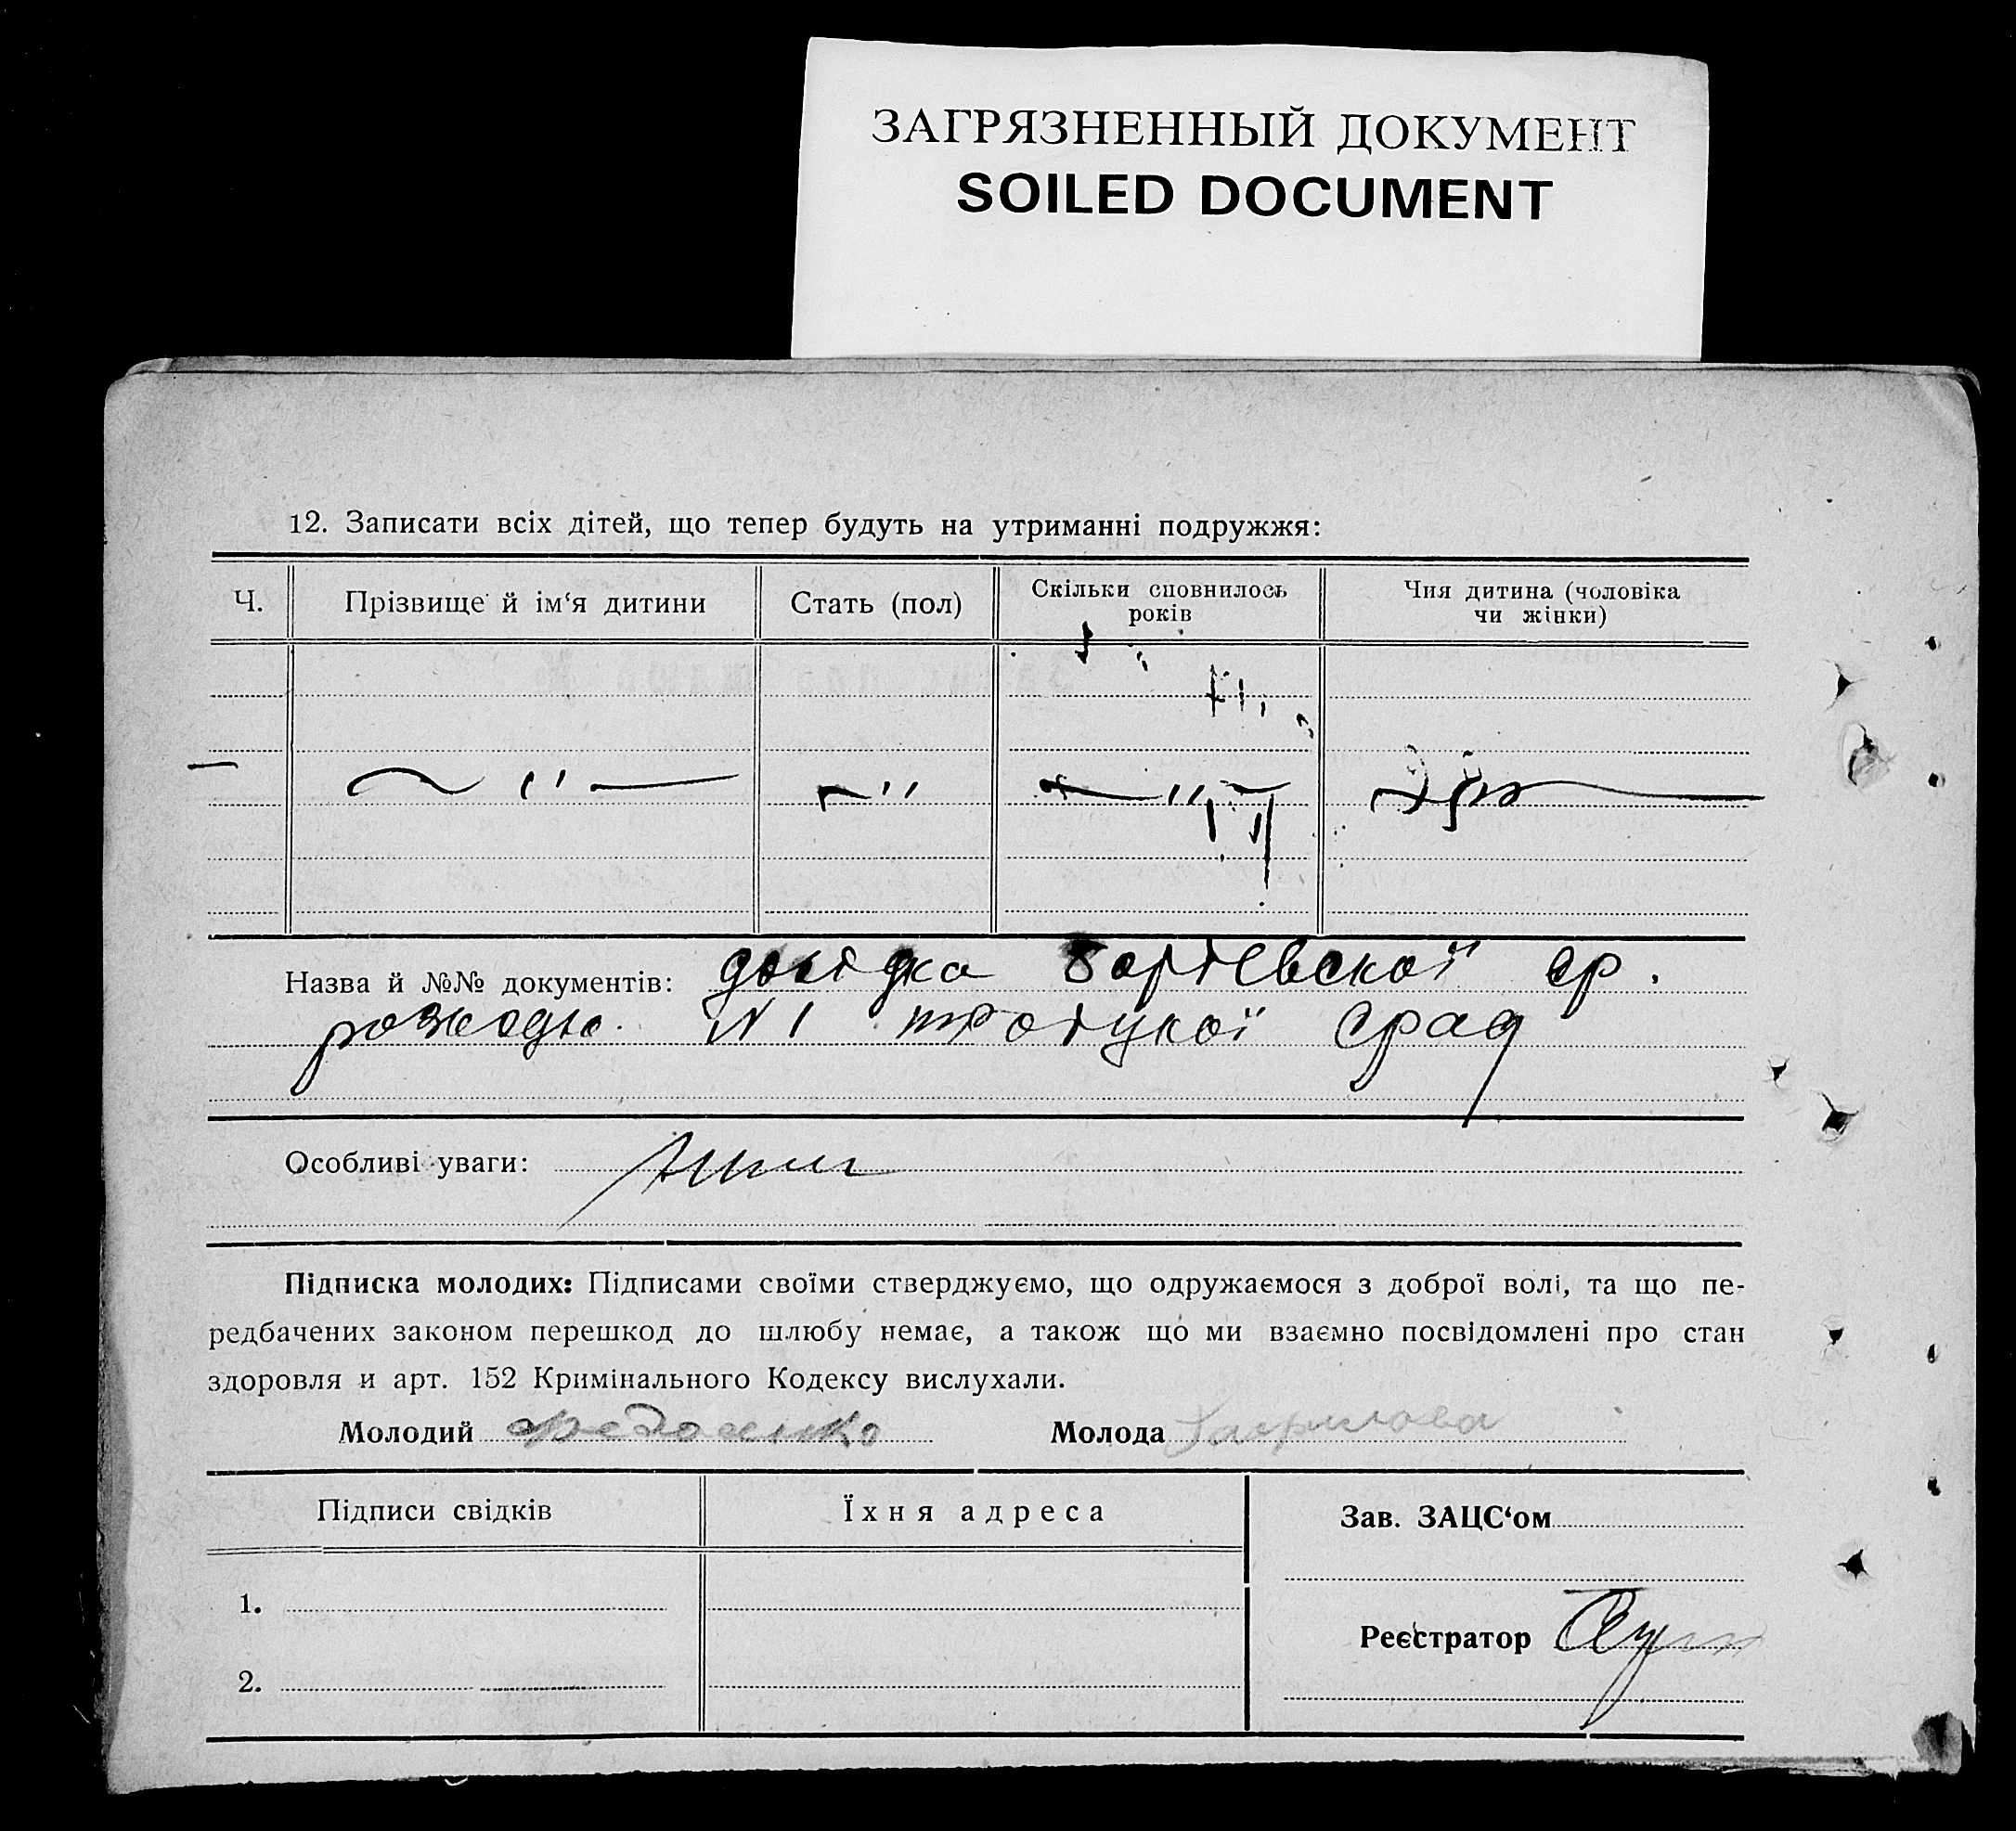 ЗАГРЯЗНЕННЫЙ ДОКУМЕНТ
SOILED DOCUMENT
12. Записати всіх дітей, що тепер будуть на утриманні подружжя:
Ч. Прізвище й ім‘я дитини Стать (пол) Скільки сповнилось років Чия дитина (чоловіка чи жінки)
— — " — — " — " —
Назва й №№ документів: довідка ср.
N 1 срад
Особливі уваги:
Підписка молодих: Підписами своїми стверджуємо, що одружаємося з доброї волі, та що пе-
редбачених законом перешкод до шлюбу немає, а також що ми взаємно посвідомлені про стан
здоровля и арт. 152 Кримінального Кодексу вислухали.
Молодий Молода Гаврилова
Підписи свідків Їхня адреса Зав. ЗАЦС‘ом
1.
Реєстратор
2.